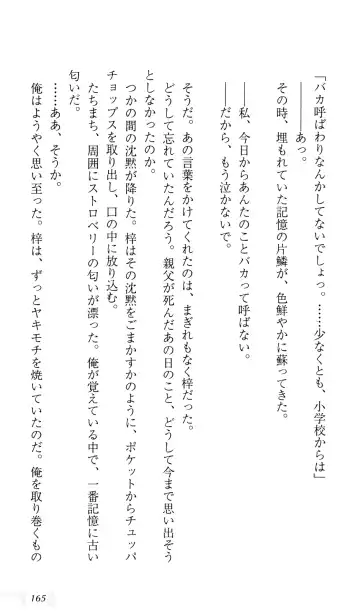 「バカ呼ばわりなんかしてないでしょっ。……少なくとも、小学校からは」
――あっ。
その時、埋もれていた記憶の片鱗が、色鮮やかに蘇ってきた。
――私、今日からあんたのことバカって呼ばない。
――だから、もう泣かないで。
そうだ。あの言葉をかけてくれたのは、まぎれもなく梓だった。
どうして忘れていたんだろう。親父が死んだあの日のこと、どうして今まで思い出そう
としなかったのか。
つかの間の沈黙が降りた。梓はその沈黙をごまかすかのように、ポケットからチュッパ
チョップスを取り出し、口の中に放り込む。
たちまち、周囲にストロベリーの匂いが漂った。俺が覚えている中で、一番記憶に古い
匂いだ。
……ああ、そうか。
俺はようやく思い至った。梓は、ずっとヤキモチを焼いていたのだ。俺を取り巻くもの
165